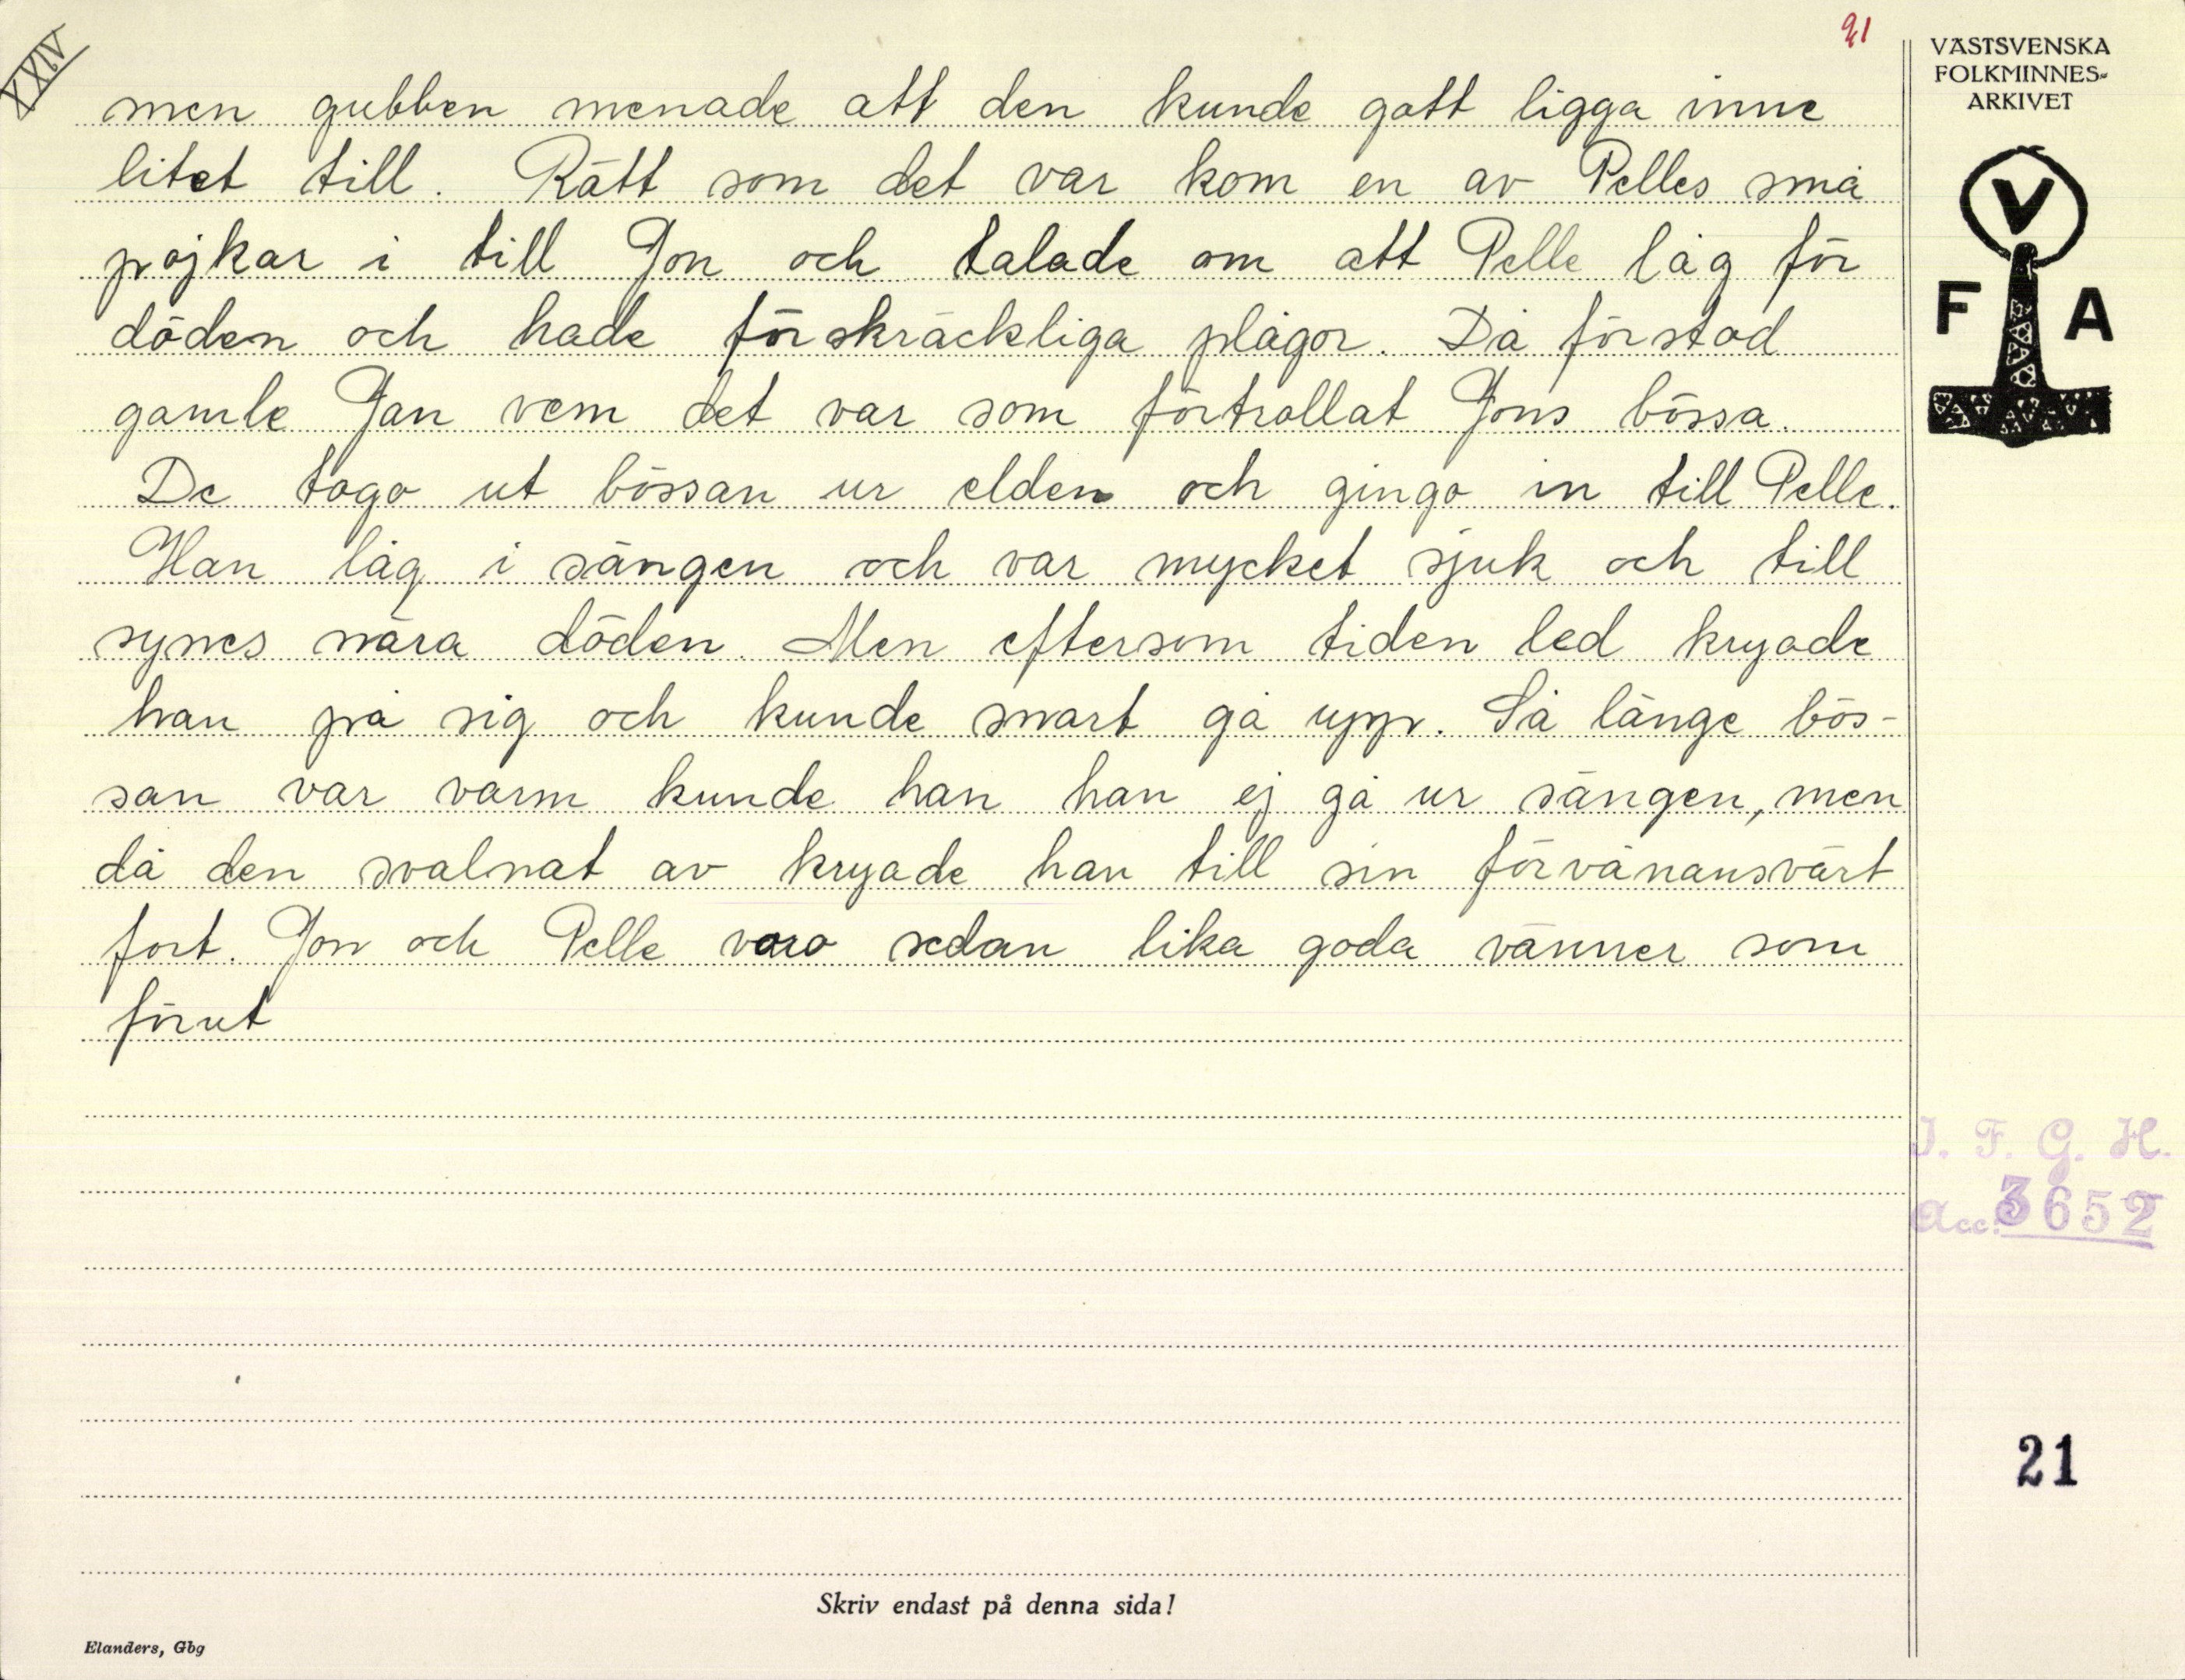 XXIV
21
men gubben menade att den kunde gott ligga inne
litet till. Rätt som det var kom en av Pelles små
pojkar i till Jon och talade om att Pelle låg för
döden och hade förskräckliga plågor. Då förstod
gamle Jan vem det var som förtrollat Jons bössa.
De togo ut bössan ur elden och gingo in till Pelle.
Han låg i sängen och var mycket sjuk och till
synes nära döden. Men eftersom tiden led kryade
han på sig och kunde snart gå upp. Så länge bös-
san var varm kunde han han ej gå ur sängen, men
då den svalnat av kryade han till sin förvånansvärt
fort. Jon och Pelle voro sedan lika goda vänner som
förut
Skriv endast på denna sida!
Elanders, Gbg
VÄSTSVENSKA
FOLKMINNES-
ARKIVET
V
F A
I. F. G. H.
Acc. 3652
21